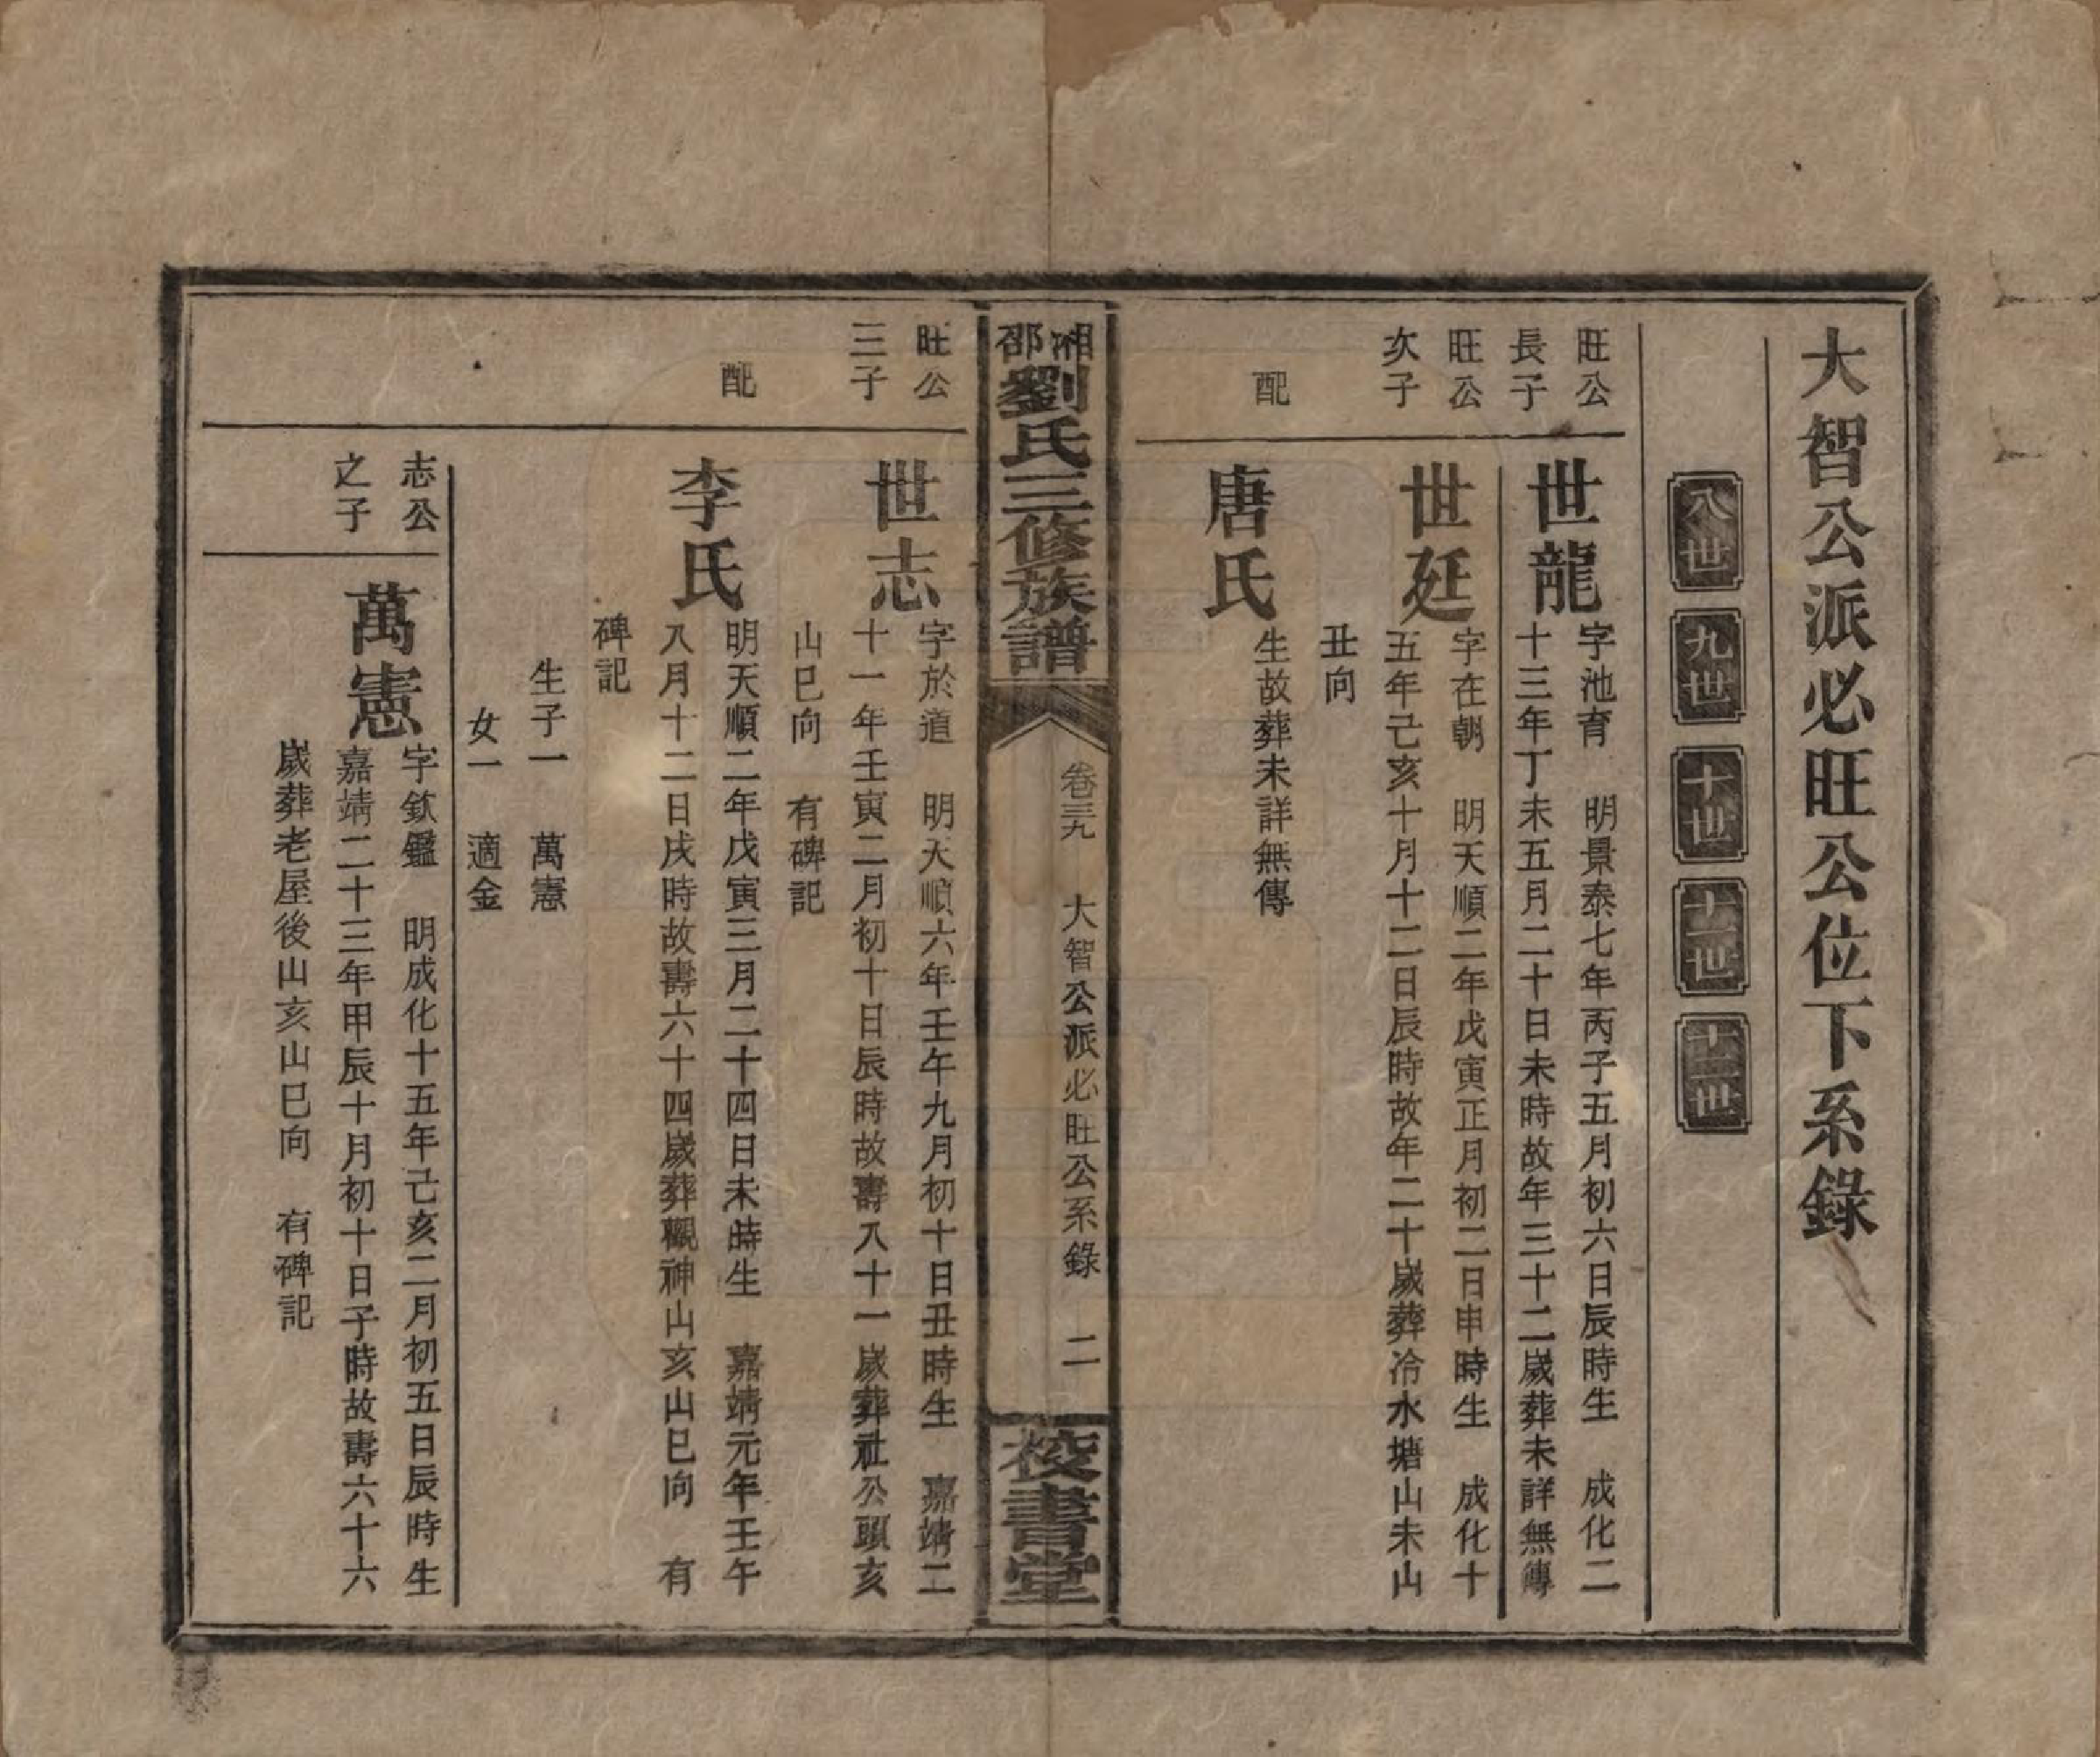 大智公派必旺公位下系錄
八世 九世 十世 十一世 十二世
旺公
長子
世龍
字池育 明景泰七年丙子五月初六日辰時生 成化二
十三年丁未五月二十日未時故年三十二歲葬未詳無傳
旺公
次子
世廷
字在朝 明天順二年戊寅正月初二日申時生 成化十
五年己亥十月十二日辰時故年二十歲葬冷水塘山未山
丑向
配
唐氏
生故葬未詳無傳
湘邵劉氏三修族譜
卷三九 大智公派必旺公系錄 二
校書堂
旺公
三子
世志
字於道 明天順六年壬午九月初十日丑時生 嘉靖二
十一年壬寅二月初十日辰時故壽八十一歲葬社公頭亥
山巳向 有碑記
配
李氏
明天順二年戊寅三月二十四日未時生 嘉靖元年壬午
八月十二日戌時故壽六十四歲葬觀神山亥山巳向 有
碑記
生子一 萬憲
女一 適金
志公
之子
萬憲
字欽鑑 明成化十五年己亥二月初五日辰時生
嘉靖二十三年甲辰十月初十日子時故壽六十六
歲葬老屋後山亥山巳向 有碑記